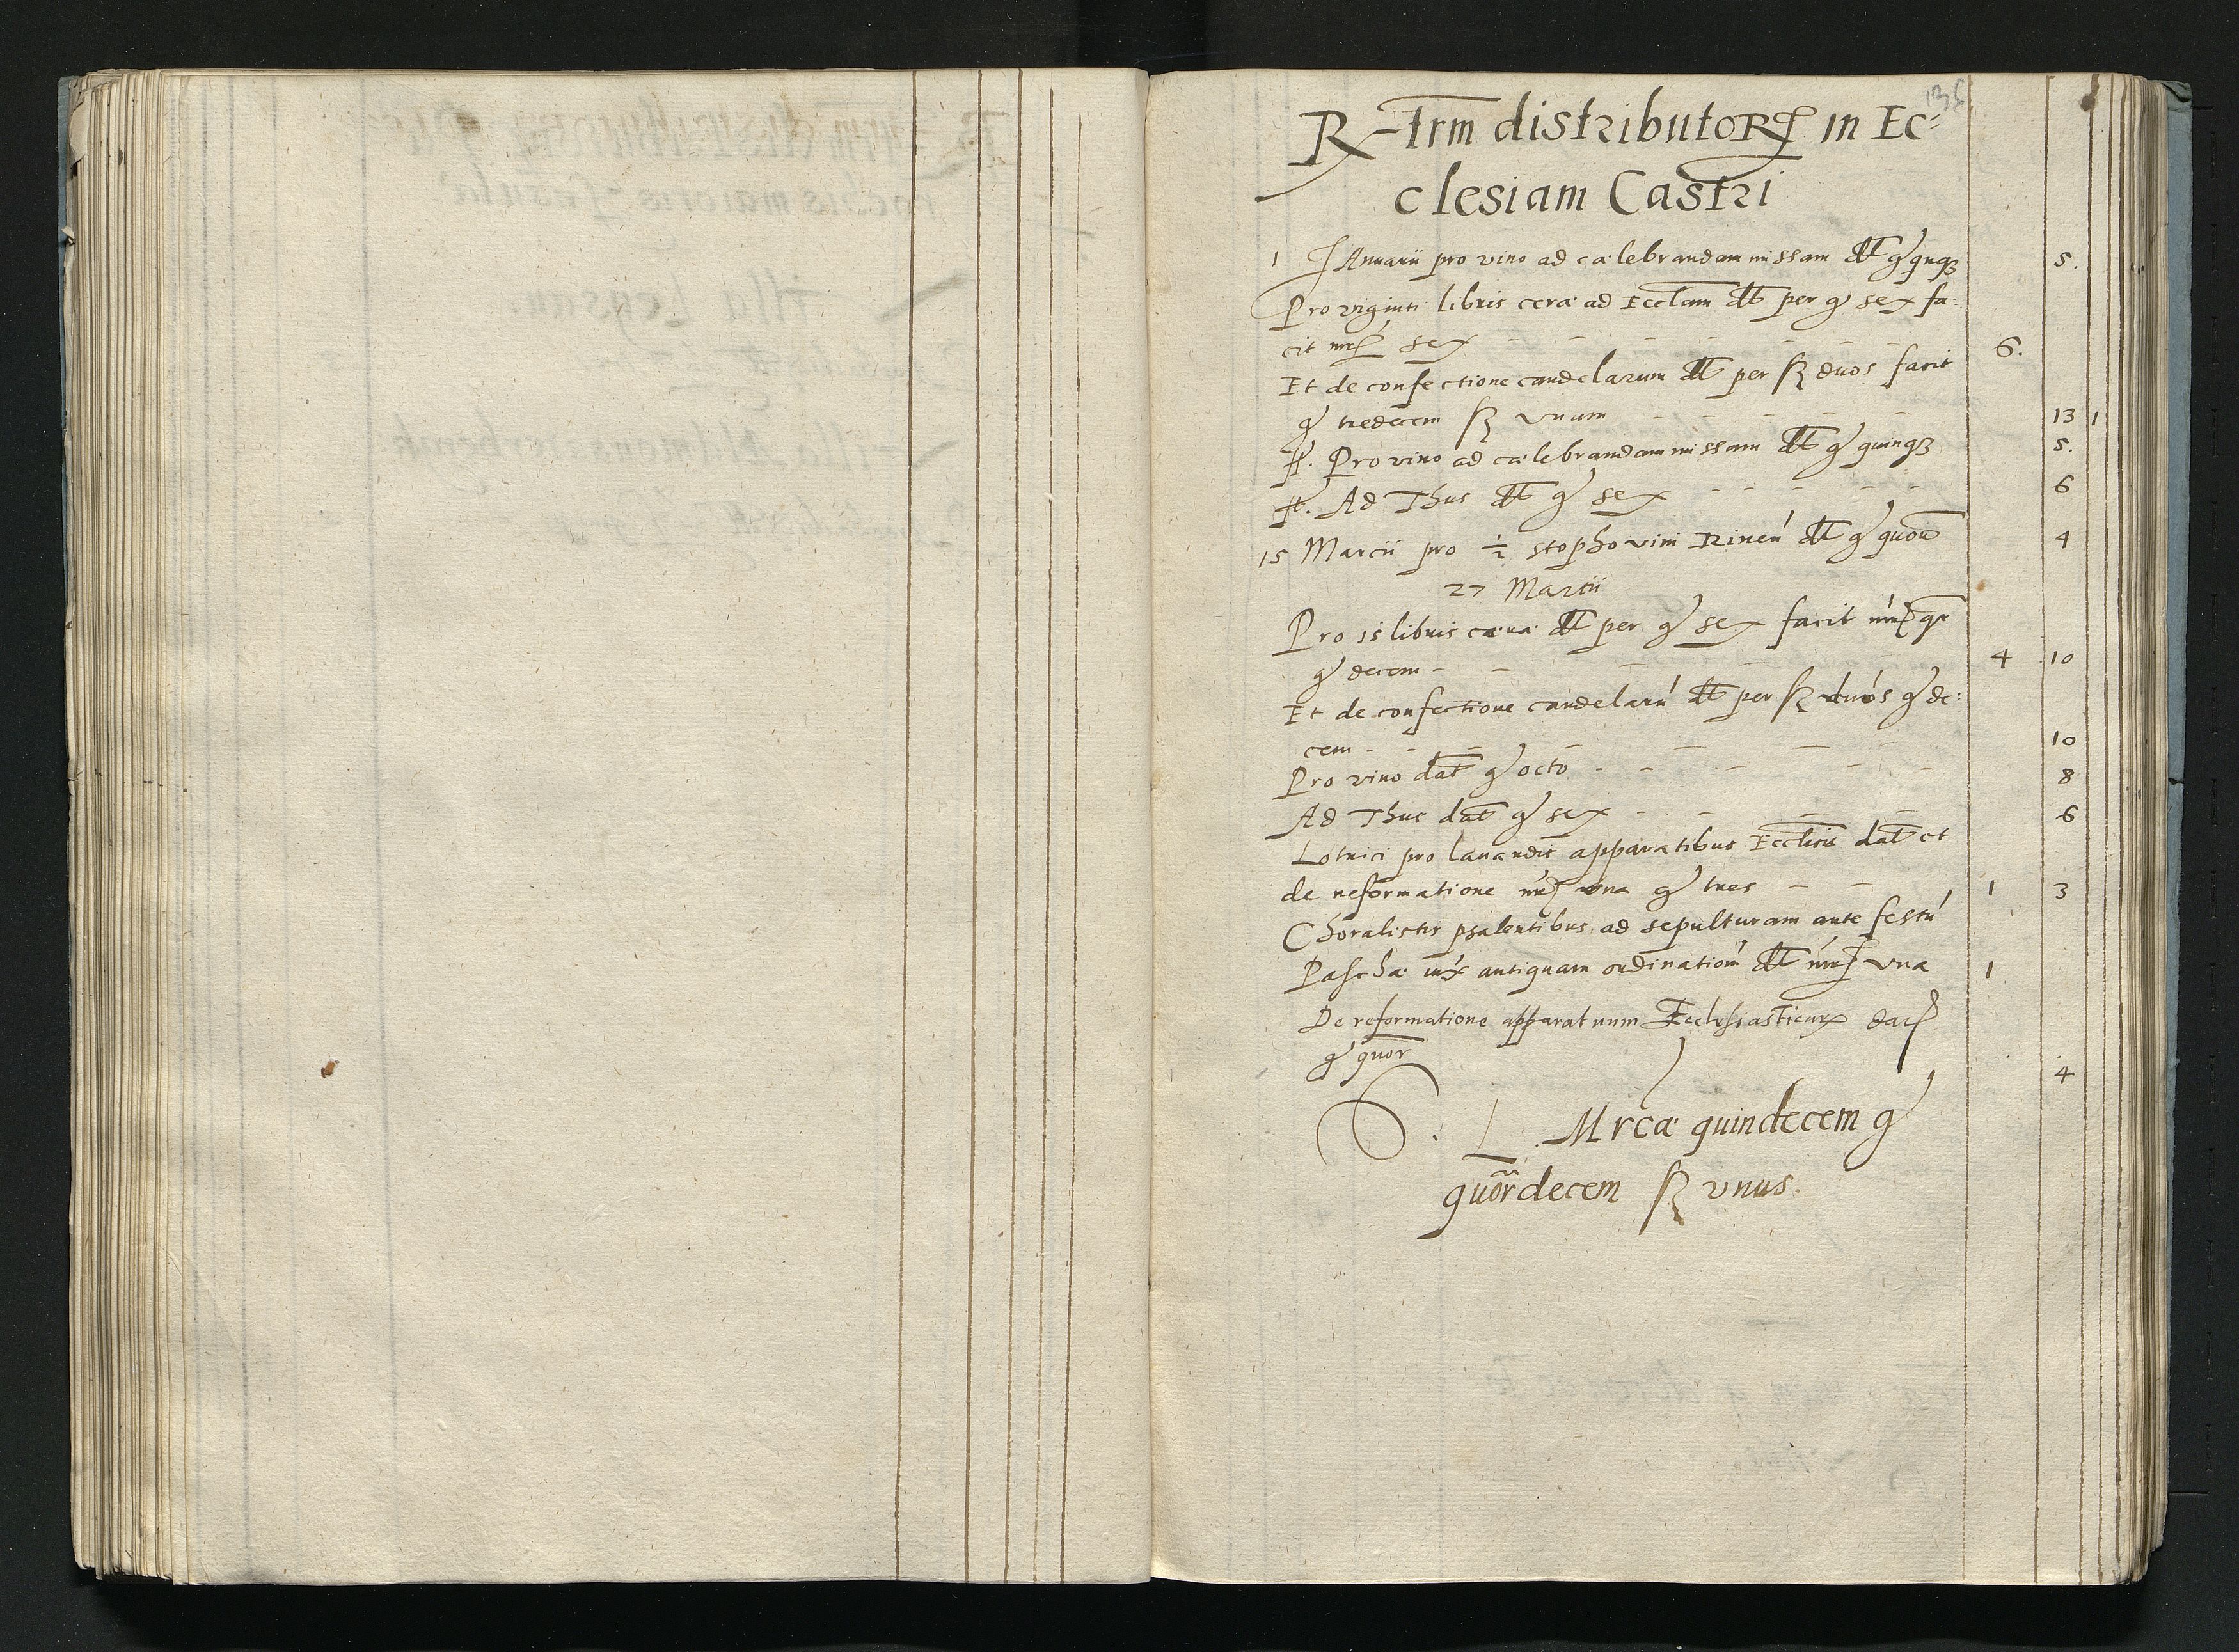 136
R-trm distributor in Ec=
clesiam Castri
1 JAnuarii pro vino ad cælebrandam missam dt g quqȝ 5.
Pro viginti libris ceræ ad Ecclam dt per g sex fa:
cit mr sex - - - - - - 6.
Et de confectione candelarum dt per sol duos facit
g tredecem sol vnum - - - - - 13 1
It. Pro vino ad cælebrandam missam dt g quinqȝ 5.
It. Ad Thus dt g sex - - - - - 6
15 Marcii pro ½ stopho vini Rinen dt g quor 4
27 Martii
Pro 15 libris cæra dt per g sex facit mr qr
g decem - - - - - 4 10
Et de confectione candelaru dt per sol duos g de:
cem - - - - - - 10
Pro vino dat g octo - - - - - 8
Ad Thus dat g sex - - - - 6
Lotrici pro lauandis apparatibus Ecclesiis dat et
de reformatione mr vna g tres - - 1 3
Choralistis psalentibus ad sepulturam ante festu
Pascha iux antiquam ordination dt mr vna 1
De reformatione apparatuum Ecclesiasticur dat
g quor 4
L Mrcæ quindecem g
quordecem sol vnus.